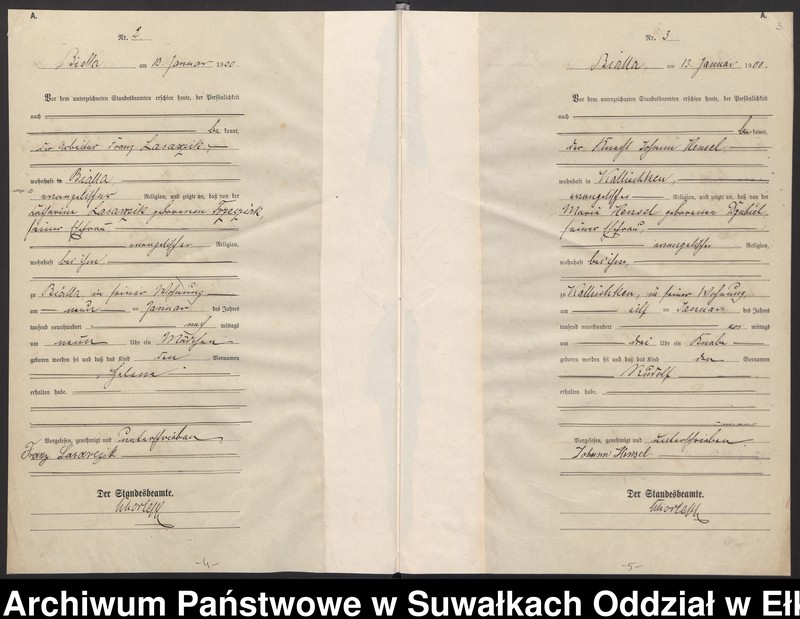 A.
Nr. 2
Bialla am 10. Januar 1900.
Vor dem unterzeichneten Standesbeamten erschien heute, der Persönlichkeit
nach
be kannt,
der Arbeiter Franz Lasarzik,
wohnhaft in Bialla,
evangelischer Religion, und zeigte an, daß von der
Lasarzik geborenen
seiner Ehefrau
evangelischer Religion,
wohnhaft bei ihm,
zu Bialla in seiner Wohnung
am neun ten Januar des Jahres
tausend neunhundert nach mittags
um neun Uhr ein Mädchen
geboren worden sei und daß das Kind den Vornamen
Helene
erhalten habe.
Vorgelesen, genehmigt und unterschrieben
Franz Lasarczik
Der Standesbeamte.
-4-
A.
3
Nr. 3
Bialla, am 13. Januar 1900.
Vor dem unterzeichneten Standesbeamten erschien heute, der Persönlichkeit
nach
be kannt,
der Knecht Johann Hensel
wohnhaft in Kallischken,
evangelischer Religion, und zeigte an, daß von der
Marie Hensel geborenen
seiner Ehefrau,
evangelischer Religion,
wohnhaft bei ihm,
zu Kallischken, in seiner Wohnung
am elf ten Januar des Jahres
tausend neunhundert vor mittags
um drei Uhr ein Knabe
geboren worden sei und daß das Kind den Vornamen
Rudolf
erhalten habe.
Vorgelesen, genehmigt und unterschrieben.
Johann Hensel
Der Standesbeamte.
-5-
Archiwum Państwowe w Suwałkach Oddział w Ełk